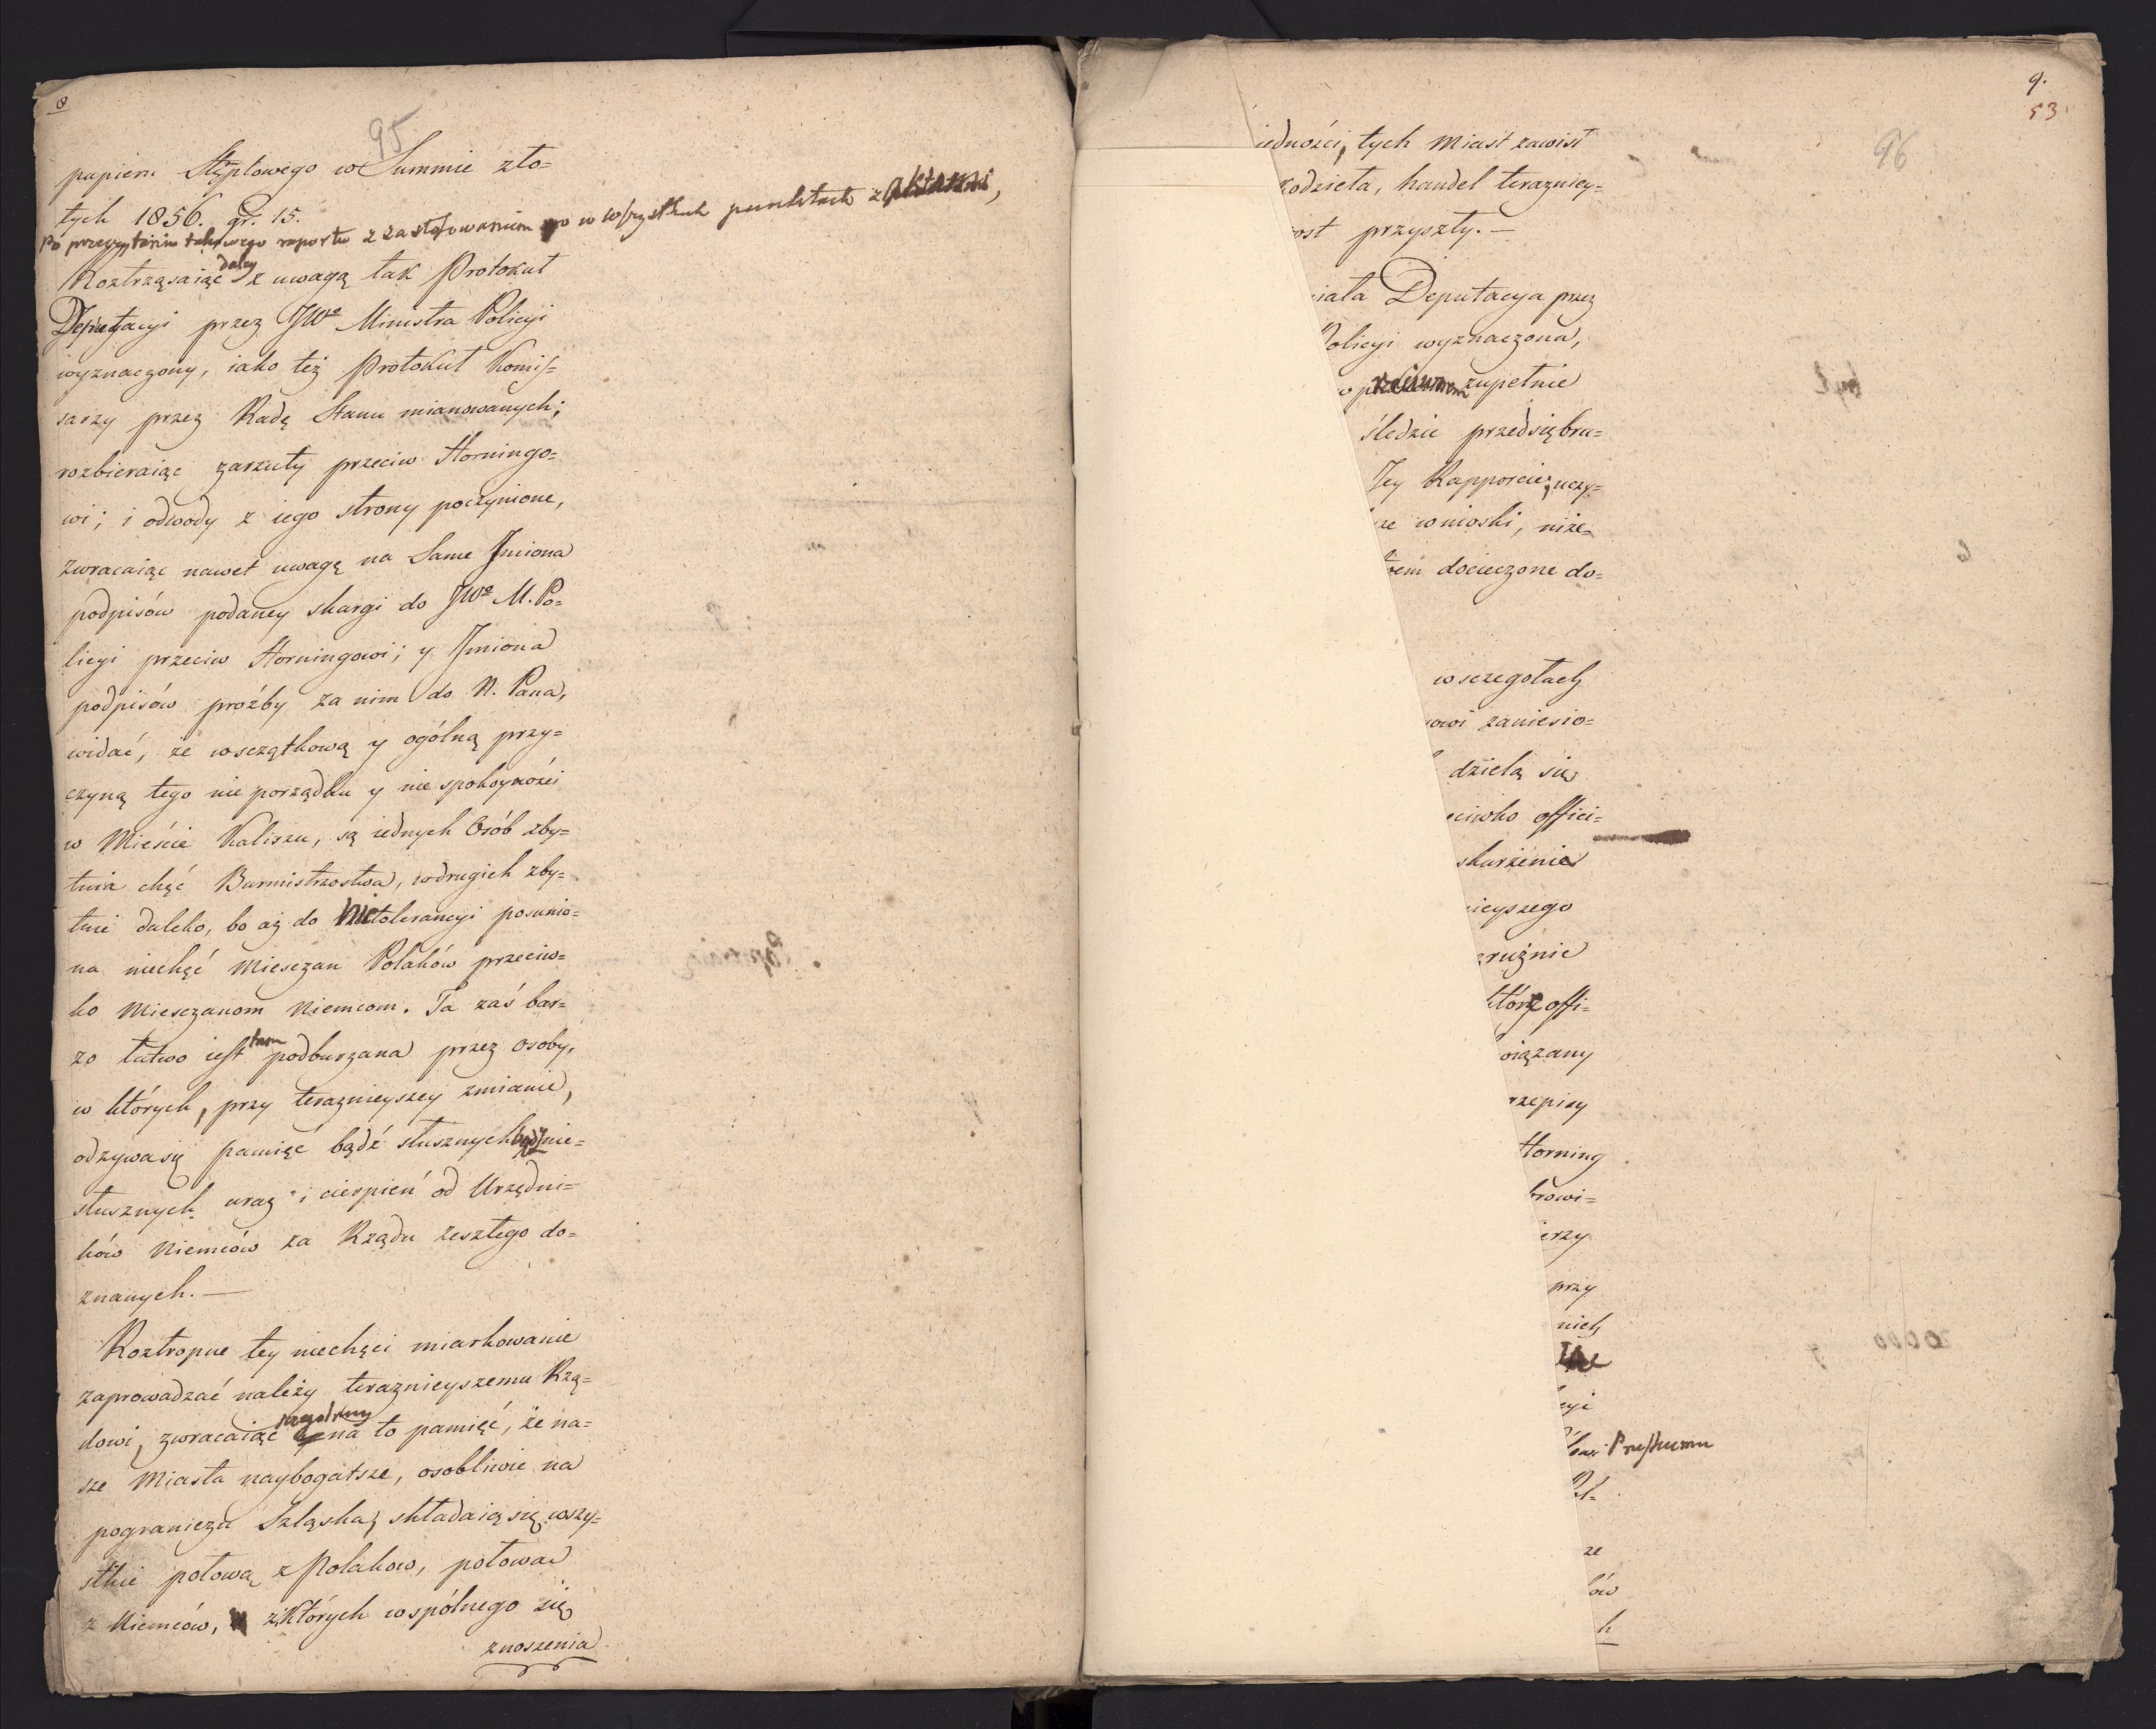 8
95
papieru Stęplowego w Summie zło=
tych 1856. gr. 15.
Po przeczytaniu takowego raportu z zastosowaniem go w wszystkich punktach z aktami,
daley
Roztrząsaiąc z uwagą tak Protokuł
Deputacyi przez JWo Ministra Policyi
wyznaczony, iako też Protokuł Komis=
sarzy przez Radę Stanu mianowanych;
rozbieraiąc zarzuty przeciw Horningo=
wi; i odwody z iego strony poczynione,
zwracaiąc nawet uwagę na Same Jmiona
podpisów podaney skargi do JWo M. Po=
licyi przeciw Horningowi; y Jmiona
podpisów proźby za nim do N. Pana,
widać, że wszczątkową y ogólną przy=
czyną tego nie porządku y nie spokoyności
w Mieście Kaliszu, są iednych Osób zby=
tnia chęć Burmistrzostwa, w drugich zby=
tnie daleko, bo aż do Nietolerancyi posunio=
na niechęć Miesczan Polaków przeciw=
ko Miesczanom Niemcom. Ta zaś bar=
zo łatwo iest tam podburzana przez osoby,
w których, przy teraznieyszey zmianie,
odzywa się pamięć bądź słusznych bądź nie=
słusznych uraz i cierpień od Urzędni=
ków Niemców za Rządu zeszłego do=
znanych. —
Roztropne tey niechęci miarkowanie
zaprowadzać należy teraznieyszemu Rzą=
dowi, zwracaiąc na to pamięć, że na=
sze Miasta naybogatsze, osobliwie na
pograniczu Szląska, składaią się wszy=
stkie połową z Polakow, połowa
z Niemców, z których wspólnego się
znoszenia
9.
53.
96
iedności, tych Miast zawisł
kodzieła, handel terazniey=
ost przyszły. —
iała Deputacya przez
Policyi wyznaczona,
zupełnie
śledzie przedsiębra=
Jey Rapporcie, uczy=
sze wnioski, niże=
tem docieczone do=
w sczegółach
owi zaniesio=
dzielą się
ciwko offici=
skarżenie
ieyszego
zruźnie
którz offi=
wiązany
rzepisy
Horning
krowi=
erzy
przy
nich
cyi
Pruskiemu
Pol=
ze
ów
h